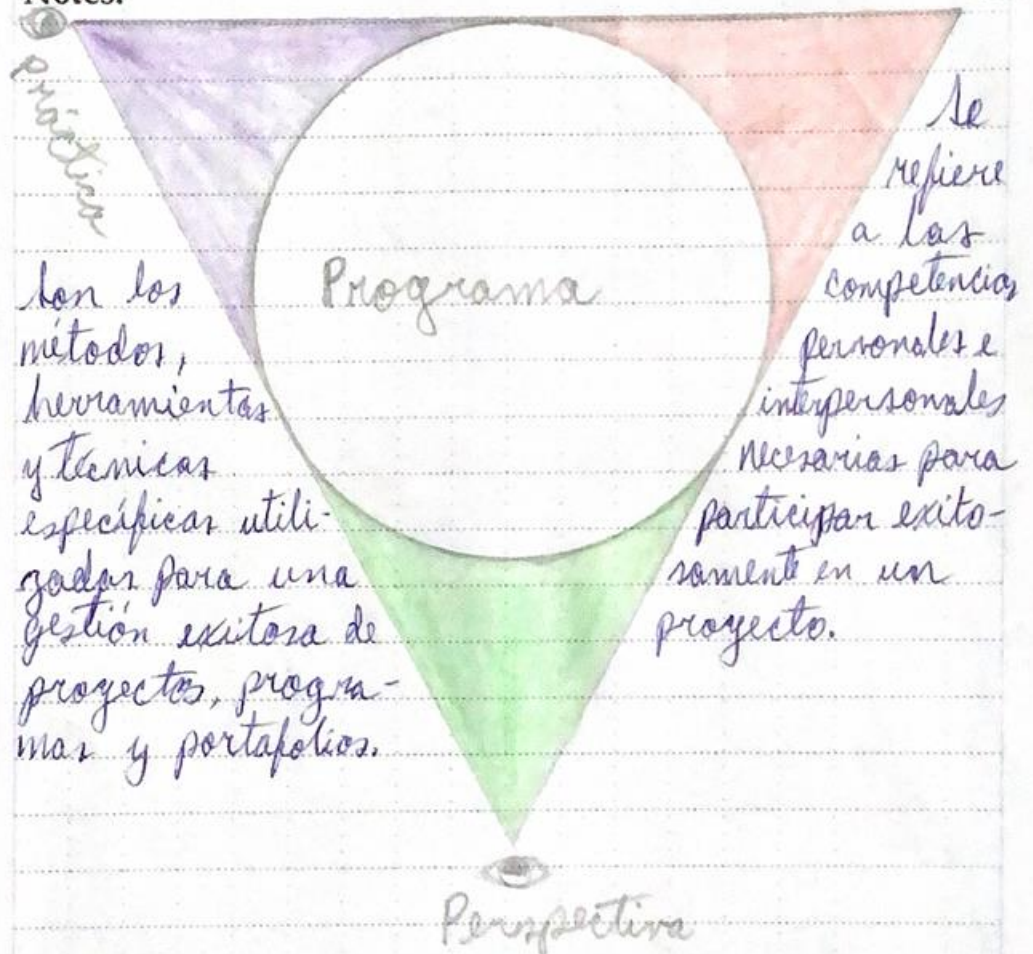 Notes:
práctica
Son los
métodos,
herramientas
y técnicas
específicas utili-
zadas para una
gestión exitosa de
proyectos, progra-
mas y portafolios.
Programa
Se
refiere
a las
competencias
personales e
interpersonales
necesarias para
participar exito-
samente en un
proyecto.
Perspectiva